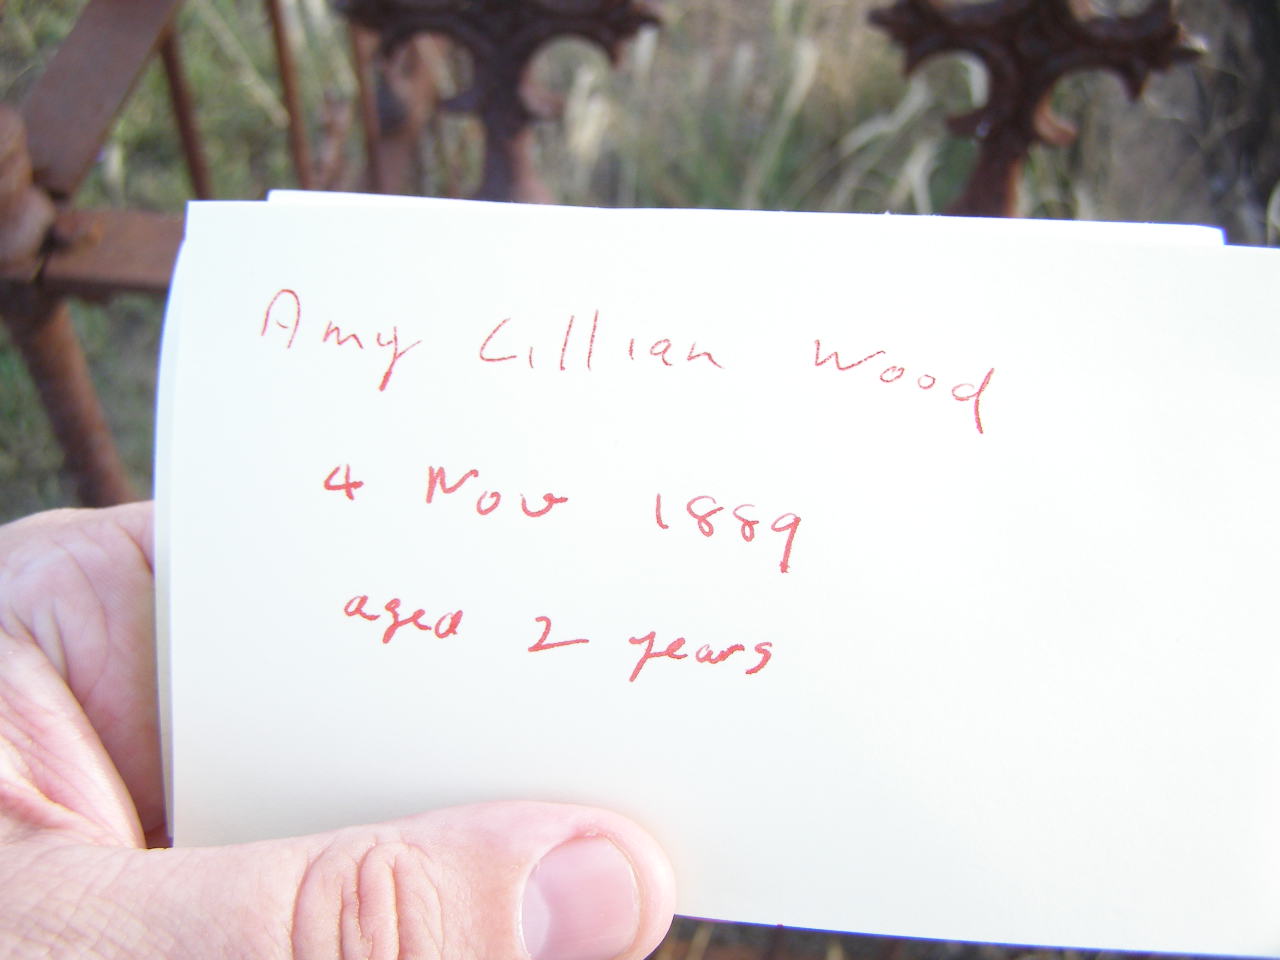 Amy Lillian Wood
4 Nov 1889
aged 2 years